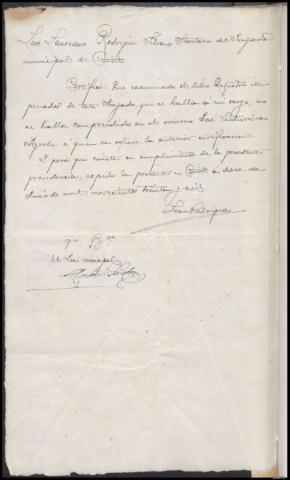 Don Laureano Rodríguez Secretario del Juzgado
municipal de
Certifico: Que examinado el libro Registro de
penados de este Juzgado, que se halla a mi cargo, no
se halla comprendido en el mismo José
a que se refiere la anterior
Y para que conste en cumplimiento de la precedente
providencia, expido la presente en a doce de
Junio de mil novecientos treinta y seis
Vº Bº
El Juez municipal